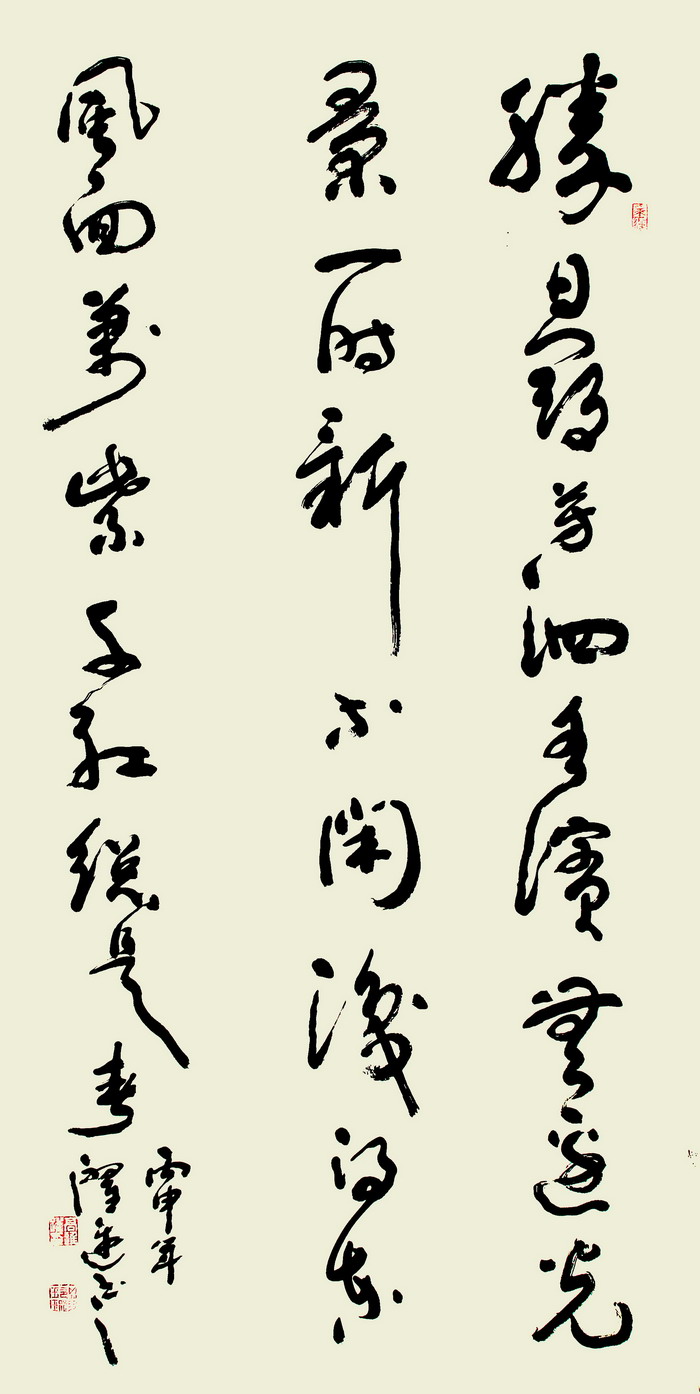 勝日尋芳泗水濱無邊光
景一時新等閑識得東
風面萬紫千紅總是春
丙申年